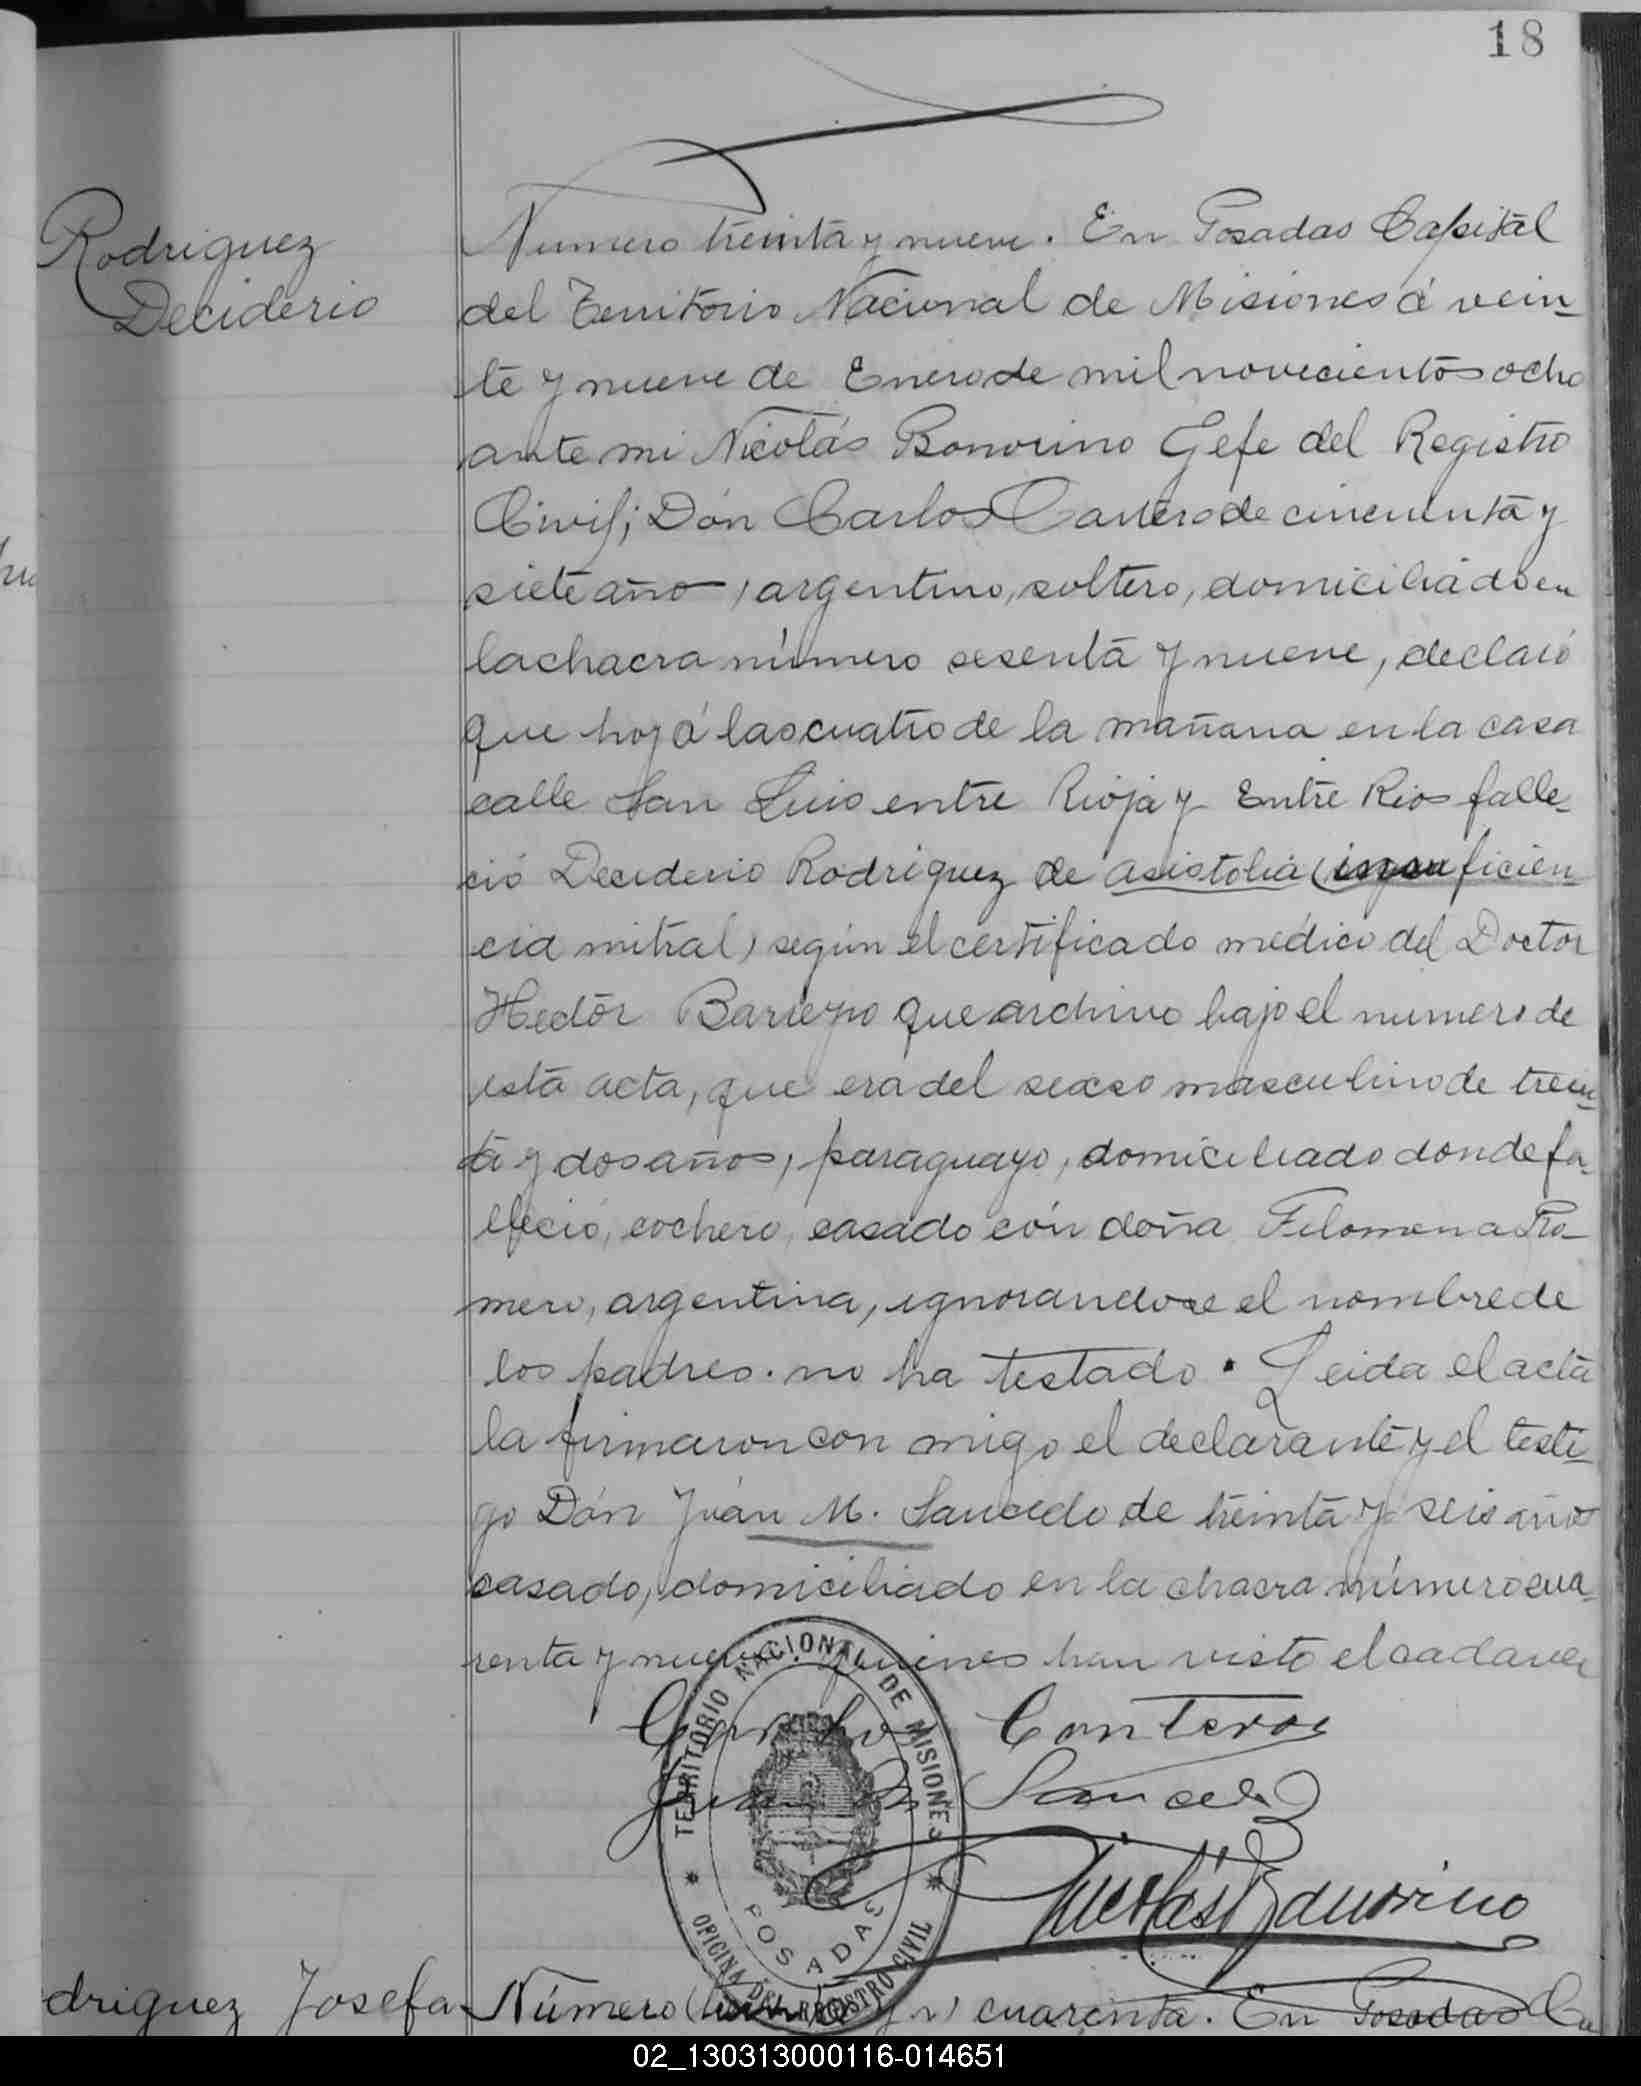 18
Rodriguez
Deciderio
Numero treinta y nueve. En Posadas Capital
del Territorio Nacional de Misiones á vein-
te y nueve de Enero de mil novecientos ocho
ante mi Nicolás Bonorino Gefe del Registro
Civil; Dón Carlos Canteros de cincuenta y
siete año, argentino, soltero, domiciliado en
la chacra número sesenta y nueve, declaró
que hoy á las cuatro de la mañana en la casa
calle San Luis entre Rioja y Entre Rios falle-
ció Deciderio Rodriguez de asistolia (insuficien-
cia mitral) según el certificado médico del Doctor
Hector Barreyro que archivo bajo el numero de
esta acta, que era del sexso masculino de trein-
ta y dos años, paraguayo, domiciliado donde fa-
lleció, cochero, casado cón doña Filomena Ro-
mero, argentina, ignorandose el nombre de
los padres. no ha testado. Leida el acta
la firmaron con migo el declarante y el testi-
go Dón Juan M. Saucedo de treinta y seis años
casado, domiciliado en la chacra número cua-
renta y nueve. quienes han visto el cadaver
Carlos Canteros
Juan M Saucedo
Nicolás Bonorino
TERRITORIO NACIONAL DE MISIONES
POSADAS
OFICINA DEL REGISTRO CIVIL
driguez Josefa
Número ( y n) cuarenta. En Posadas Ca
02_130313000116-014651